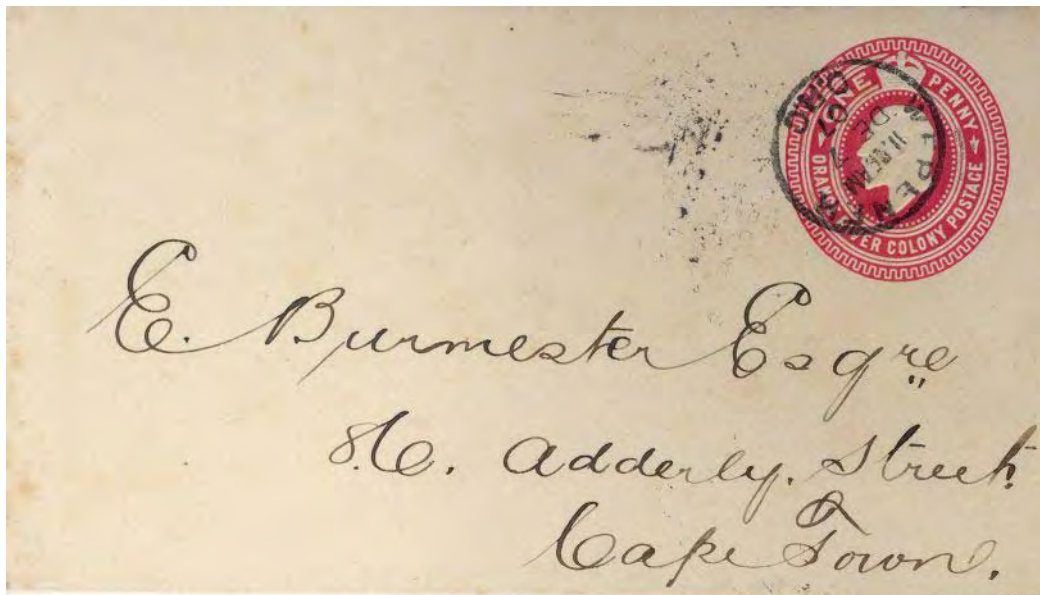 ONE PENNY
ORANGE RIVER COLONY POSTAGE
WEPENER
11.35 AM
DE 7
07
O.R.C
E. Burmester Esqre
86. Adderly. Street.
Cape Town.